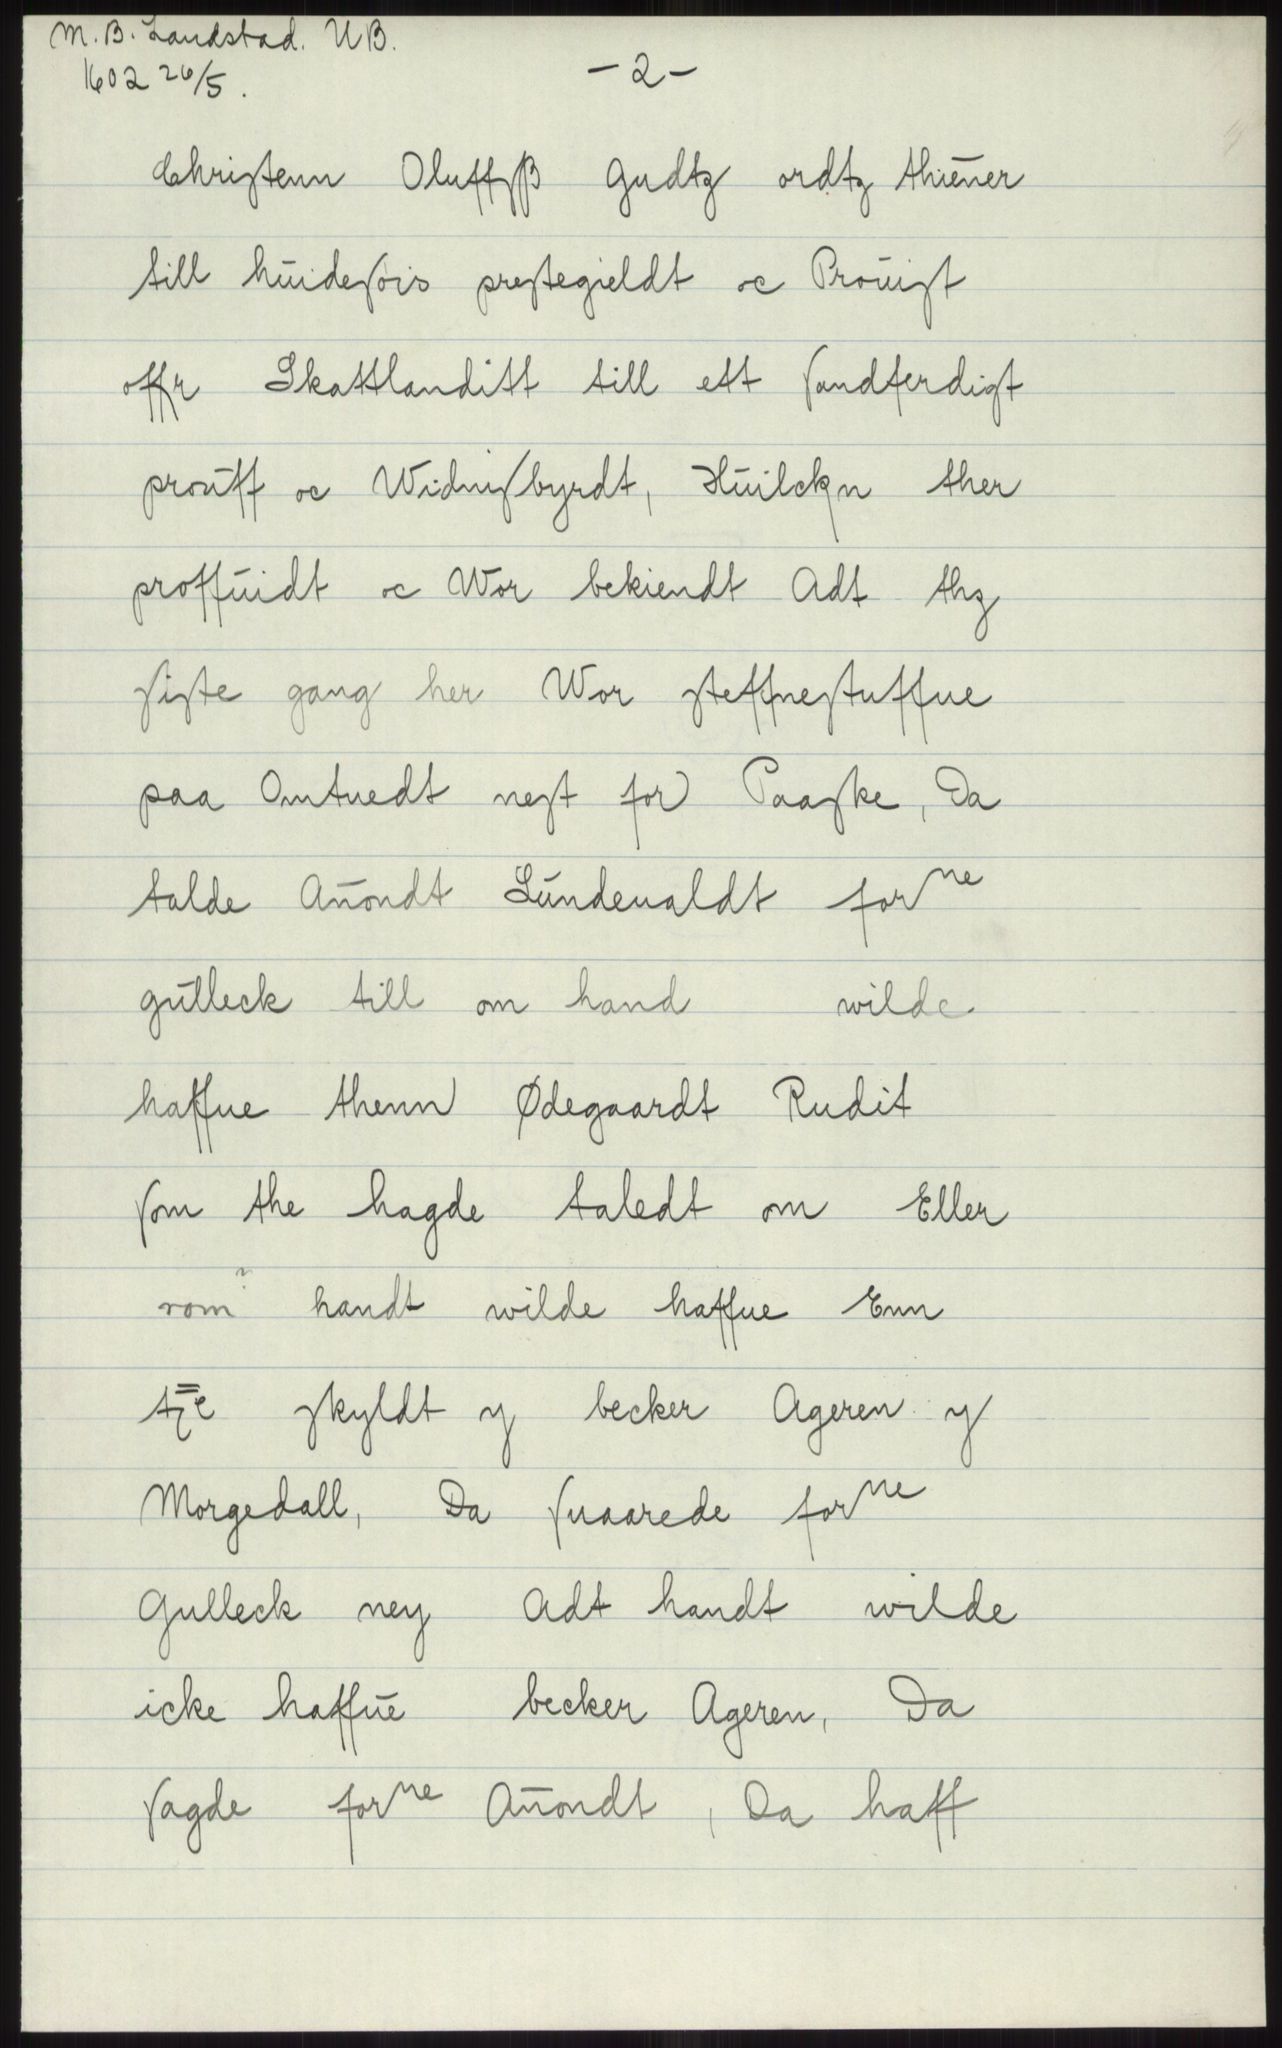 M. B. Landstad. UB.
1602 26/5.
- 2 -
Christenn Oluffsß Gudtz ordtz thienner
till huidesøis prestegieldt oc Prouist
offr Skattlanditt till ett sandferdigt
prouff oc Widnisbyrdt, Huilckn ther
proffuidt oc Wor bekiendt Adt thz
siste gang her Wor steffnestuffue
paa Omtuedt nest for Paaske, Da
talde Auondt Lundeualdt forne
gulleck till om hand wilde
haffue thenn Ødegaardt Rudit
som the hagde taledt om Eller
rom handt wilde haffue Enn
skyldt y becker Ageren y
Morgedall, Da suaarede forne
Gulleck ney Adt handt wilde
icke haffue becker Ageren, Da
sagde forne Auondt, Da haff